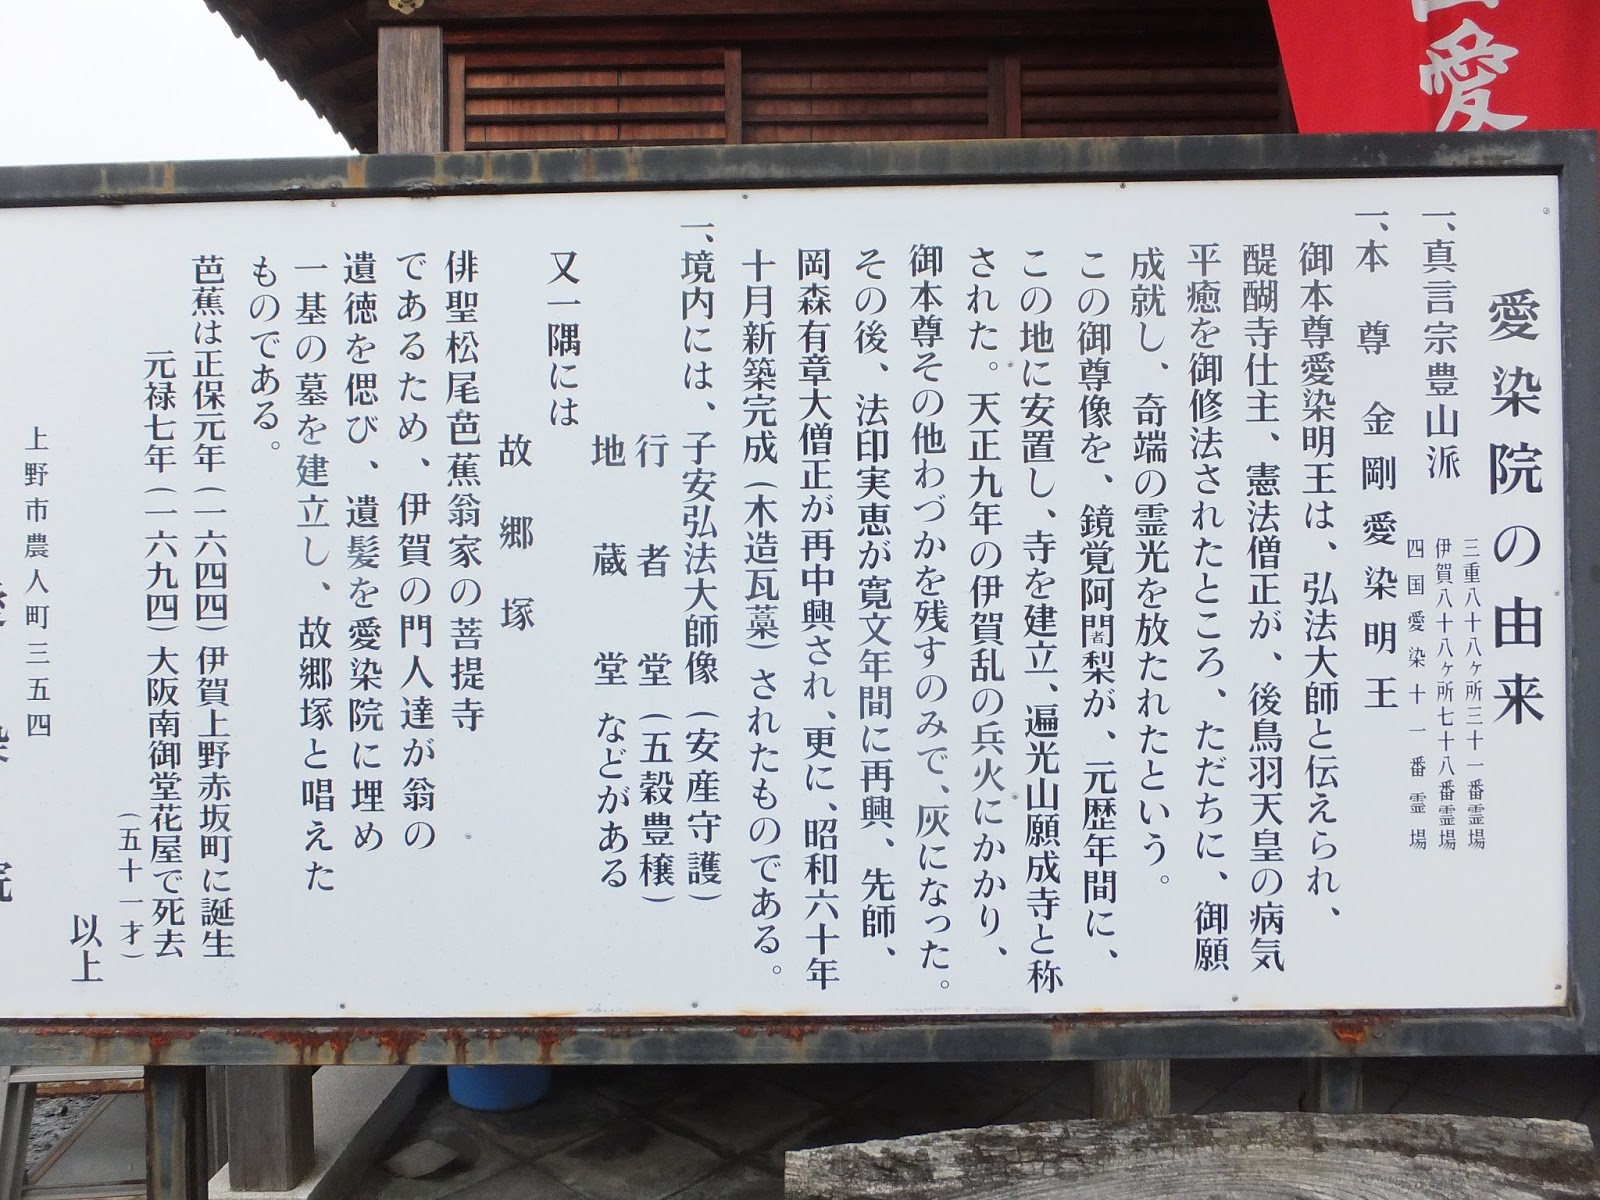 愛染院の由来
一、真言宗豊山派
三重八十八ヶ所三十一番霊場
伊賀八十八ヶ所七十八番霊場
四国愛染十一番霊場
一、本尊 金剛愛染明王
御本尊愛染明王は、弘法大師と伝えられ、
醍醐寺仕主、憲法僧正が、後鳥羽天皇の病気
平癒を御修法されたところ、ただちに、御願
成就し、奇端の霊光を放たれたという。
この御尊像を、鏡覚阿闍梨が、元歴年間に、
この地に安置し、寺を建立、遍光山願成寺と称
された。天正九年の伊賀乱の兵火にかかり、
御本尊その他わづかを残すのみで、灰になった。
その後、法印実恵が寛文年間に再興、先師、
岡森有章大僧正が再中興され、更に、昭和六十年
十月新築完成(木造瓦藁)されたものである。
一、境内には、子安弘法大師像(安産守護)
行者堂(五穀豊穣)
地蔵堂などがある
又一隅には
故郷塚
俳聖松尾芭蕉翁家の菩提寺
であるため、伊賀の門人達が翁の
遺徳を偲び、遺髪を愛染院に埋め
一基の墓を建立し、故郷塚と唱えた
ものである。
芭蕉は正保元年(一六四四)伊賀上野赤坂町に誕生
元禄七年(一六九四)大阪南御堂花屋で死去
(五十一才)
以上
上野市農人町三五四
院
愛